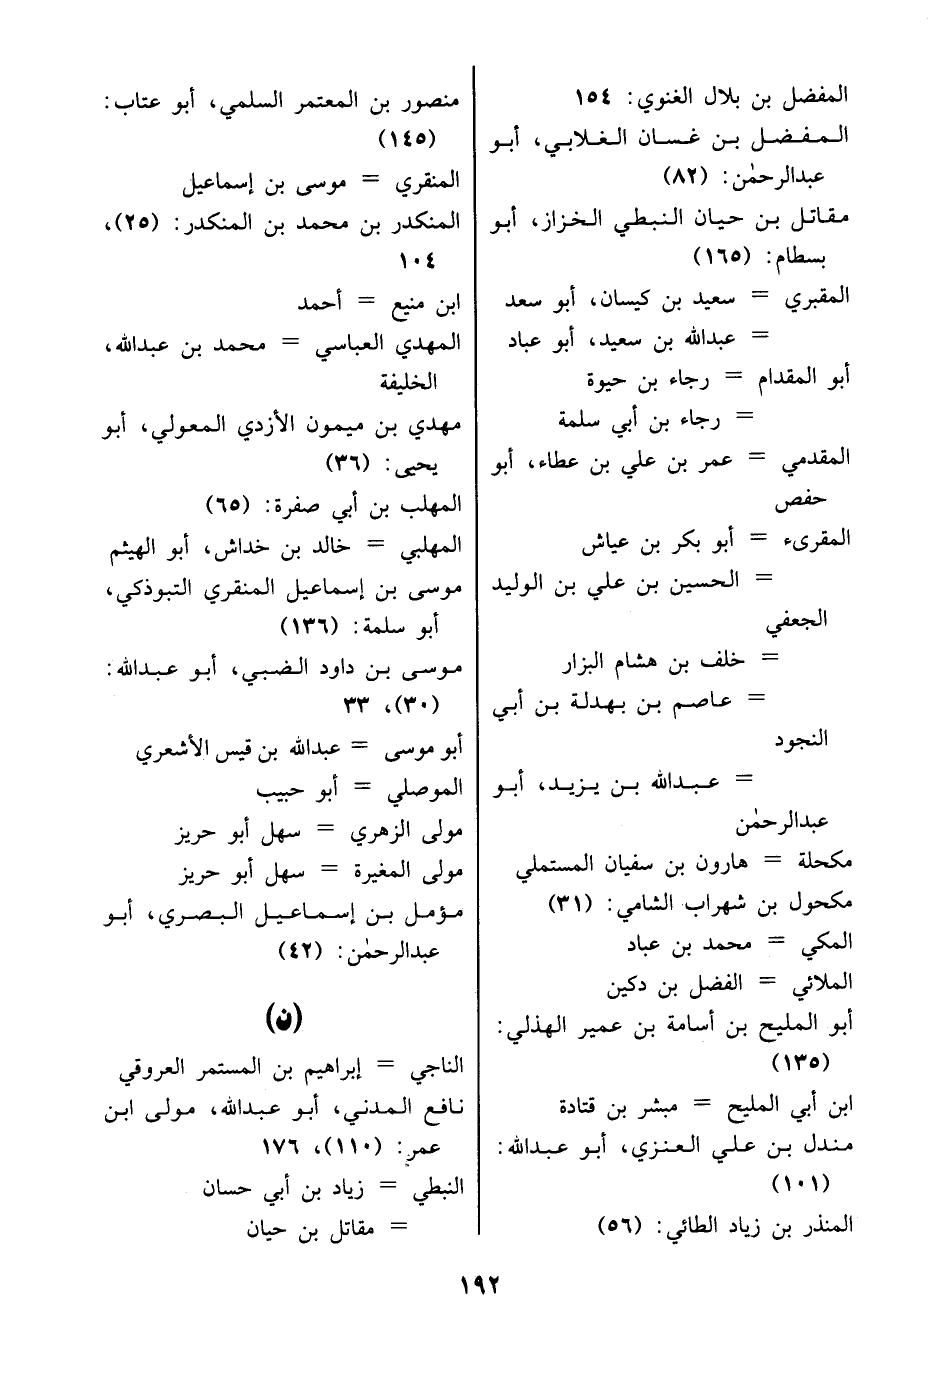 المفضل بن بلال الغنوي: ١٥٤
المفضل بن غسان الغلابي، أبو
عبدالرحمٰن: (٨٢)
مقاتل بن حيان النبطي الخزاز، أبو
بسطام: (١٦٥)
المقبري = سعيد بن كيسان، أبو سعد
= عبدالله بن سعيد، أبو عباد
أبو المقدام = رجاء بن حيوة
= رجاء بن أبي سلمة
المقدمي = عمر بن علي بن عطاء، أبو
حفص
المقرىء = أبو بكر بن عياش
= الحسين بن علي بن الوليد
الجعفي
= خلف بن هشام البزار
= عاصم بن بهدلة بن أبي
النجود
= عبدالله بن يزيد، أبو
عبدالرحمٰن
مكحلة = هارون بن سفيان المستملي
مكحول بن شهراب الشامي: (٣١)
المكي = محمد بن عباد
الملائي = الفضل بن دكين
أبو المليح بن أسامة بن عمير الهذلي:
(١٣٥)
ابن أبي المليح = مبشر بن قتادة
مندل بن علي العنزي، أبو عبدالله:
(١٠١)
المنذر بن زياد الطائي: (٥٦)
منصور بن المعتمر السلمي، أبو عتاب:
(١٤٥)
المنقري = موسى بن إسماعيل
المنكدر بن محمد بن المنكدر: (٢٥)،
١٠٤
ابن منيع = أحمد
المهدي العباسي = محمد بن عبدالله،
الخليفة
مهدي بن ميمون الأزدي المعولي، أبو
يحيى: (٣٦)
المهلب بن أبي صفرة: (٦٥)
المهلبي = خالد بن خداش، أبو الهيثم
موسى بن إسماعيل المنقري التبوذكي،
أبو سلمة: (١٣٦)
موسى بن داود الضبي، أبو عبدالله:
(٣٠)، ٣٣
أبو موسى = عبدالله بن قيس الأشعري
الموصلي = أبو حبيب
مولى الزهري = سهل أبو حريز
مولى المغيرة = سهل أبو حريز
مؤمل بن إسماعيل البصري، أبو
عبدالرحمٰن: (٤٢)
(ن)
الناجي = إبراهيم بن المستمر العروقي
نافع المدني، أبو عبدالله، مولى ابن
عمر: (١١٠)، ١٧٦
النبطي = زياد بن أبي حسان
= مقاتل بن حيان
١٩٢